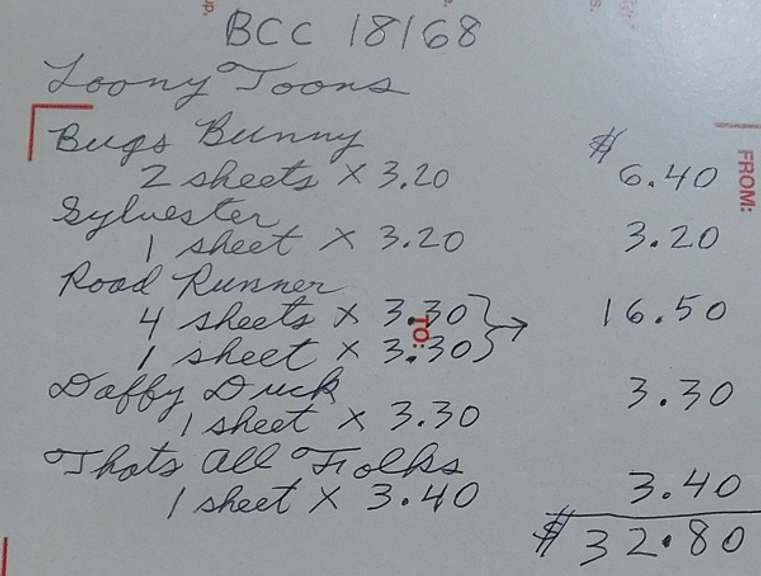 BCC 18168
Loony Toons
Bugs Bunny $
2 sheets x 3.20 6.40
Sylvester
1 sheet x 3.20 3.20
Road Runner
4 sheets x 3.30 } → 16.50
1 sheet x 3.30
Daffy Duck 3.30
1 sheet x 3.30
Thats all Folks
1 sheet x 3.40 3.40
$ 32.80
TO:
FROM: